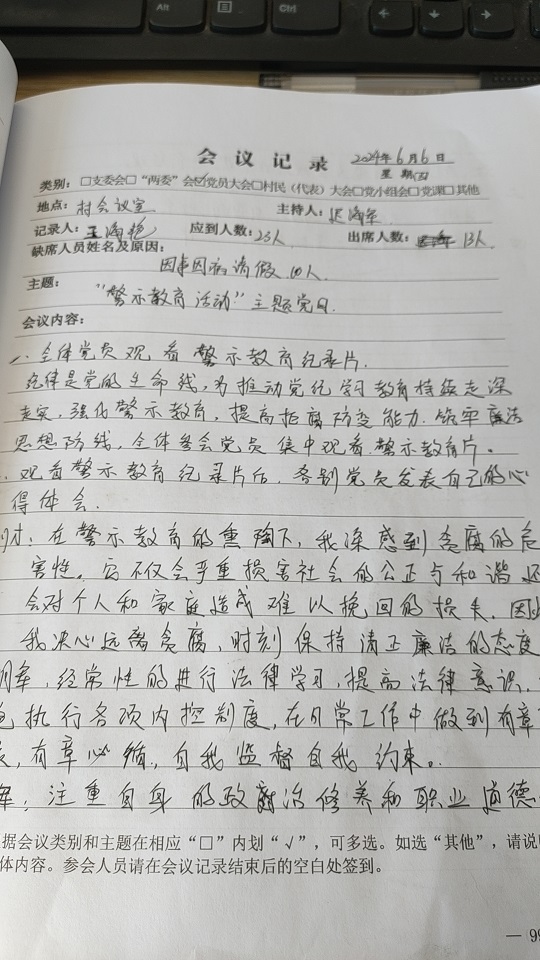 Alt
Ctrl
会议记录 2024年6月6日
星期四
类别：□支委会□“两委”会☑党员大会□村民（代表）大会□党小组会□党课□其他
地点：村会议室 主持人：海军
记录人：王海艳 应到人数：23人 出席人数：13人
缺席人员姓名及原因：
因事因病请假10人.
主题：
“警示教育活动”主题党日.
会议内容：
一、全体党员观看警示教育纪录片.
纪律是党的生命线，为推动党纪学习教育持续走深
走实，强化警示教育，提高拒腐防变能力.筑牢廉洁
思想防线，全体参会党员集中观看警示教育片。
观看警示教育纪录片后，各别党员发表自己的心
得体会.
才：在警示教育的熏陶下，我深感到贪腐的危
害性。它不仅会严重损害社会的公正与和谐还
会对个人和家庭造成难以挽回的损失.因此
我决心远离贪腐，时刻保持清正廉洁的态度
，经常性的进行法律学习，提高法律意识.
执行各项内控制度，在日常工作中做到有章
，有章必循，自我监督自我约束。
军：注重自身的政治修养和职业道德
据会议类别和主题在相应“□”内划“√”，可多选。如选“其他”，请说明
体内容。参会人员请在会议记录结束后的空白处签到。
— 99